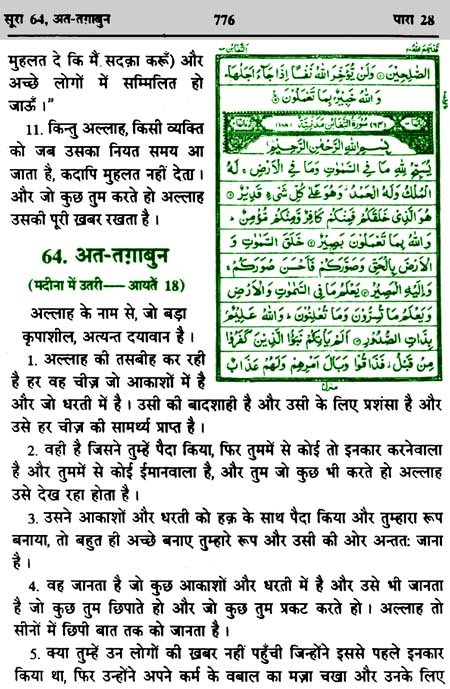 सूरा 64, अत-तग़ाबुन
776
पारा 28
मुहलत दे कि मैं सदक़ा करूँ) और
अच्छे लोगों में सम्मिलित हो
जाऊँ ।"
11. किन्तु अल्लाह, किसी व्यक्ति
को जब उसका नियत समय आ
जाता है, कदापि मुहलत नहीं देता ।
और जो कुछ तुम करते हो अल्लाह
उसकी पूरी ख़बर रखता है ।
64. अत-तग़ाबुन
(मदीना में उतरी— आयतें 18)
अल्लाह के नाम से, जो बड़ा
कृपाशील, अत्यन्त दयावान है ।
1. अल्लाह की तसबीह कर रही
है हर वह चीज़ जो आकाशों में है
और जो धरती में है । उसी की बादशाही है और उसी के लिए प्रशंसा है और
उसे हर चीज़ की सामर्थ्य प्राप्त है ।
2. वही है जिसने तुम्हें पैदा किया, फिर तुममें से कोई तो इनकार करनेवाला
है और तुममें से कोई ईमानवाला है, और तुम जो कुछ भी करते हो अल्लाह
उसे देख रहा होता है ।
3. उसने आकाशों और धरती को हक़ के साथ पैदा किया और तुम्हारा रूप
बनाया, तो बहुत ही अच्छे बनाए तुम्हारे रूप और उसी की ओर अन्ततः जाना
है ।
4. वह जानता है जो कुछ आकाशों और धरती में है और उसे भी जानता
है जो कुछ तुम छिपाते हो और जो कुछ तुम प्रकट करते हो । अल्लाह तो
सीनों में छिपी बात तक को जानता है ।
5. क्या तुम्हें उन लोगों की ख़बर नहीं पहुँची जिन्होंने इससे पहले इनकार
किया था, फिर उन्होंने अपने कर्म के वबाल का मज़ा चखा और उनके लिए
الصّٰلِحِيْنَ ۝ وَلَنْ يُّؤَخِّرَ اللّٰهُ نَفْسًا اِذَا جَآءَ اَجَلُهَا ؕ
وَاللّٰهُ خَبِيْرٌۢ بِمَا تَعْمَلُوْنَ ۝
سُوْرَةُ التَّغَابُنِ مَدَنِيَّةٌ
بِسْمِ اللّٰهِ الرَّحْمٰنِ الرَّحِيْمِ
يُسَبِّحُ لِلّٰهِ مَا فِي السَّمٰوٰتِ وَمَا فِي الْاَرْضِ ۚ لَهُ
الْمُلْكُ وَلَهُ الْحَمْدُ ؗ وَهُوَ عَلٰى كُلِّ شَيْءٍ قَدِيْرٌ ۝
هُوَ الَّذِيْ خَلَقَكُمْ فَمِنْكُمْ كَافِرٌ وَّمِنْكُمْ مُّؤْمِنٌ ؕ
وَاللّٰهُ بِمَا تَعْمَلُوْنَ بَصِيْرٌ ۝ خَلَقَ السَّمٰوٰتِ وَ
الْاَرْضَ بِالْحَقِّ وَصَوَّرَكُمْ فَاَحْسَنَ صُوَرَكُمْ ۚ
وَاِلَيْهِ الْمَصِيْرُ ۝ يَعْلَمُ مَا فِي السَّمٰوٰتِ وَالْاَرْضِ
وَيَعْلَمُ مَا تُسِرُّوْنَ وَمَا تُعْلِنُوْنَ ؕ وَاللّٰهُ عَلِيْمٌۢ
بِذَاتِ الصُّدُوْرِ ۝ اَلَمْ يَاْتِكُمْ نَبَؤُا الَّذِيْنَ كَفَرُوْا
مِنْ قَبْلُ ؗ فَذَاقُوْا وَبَالَ اَمْرِهِمْ وَلَهُمْ عَذَابٌ